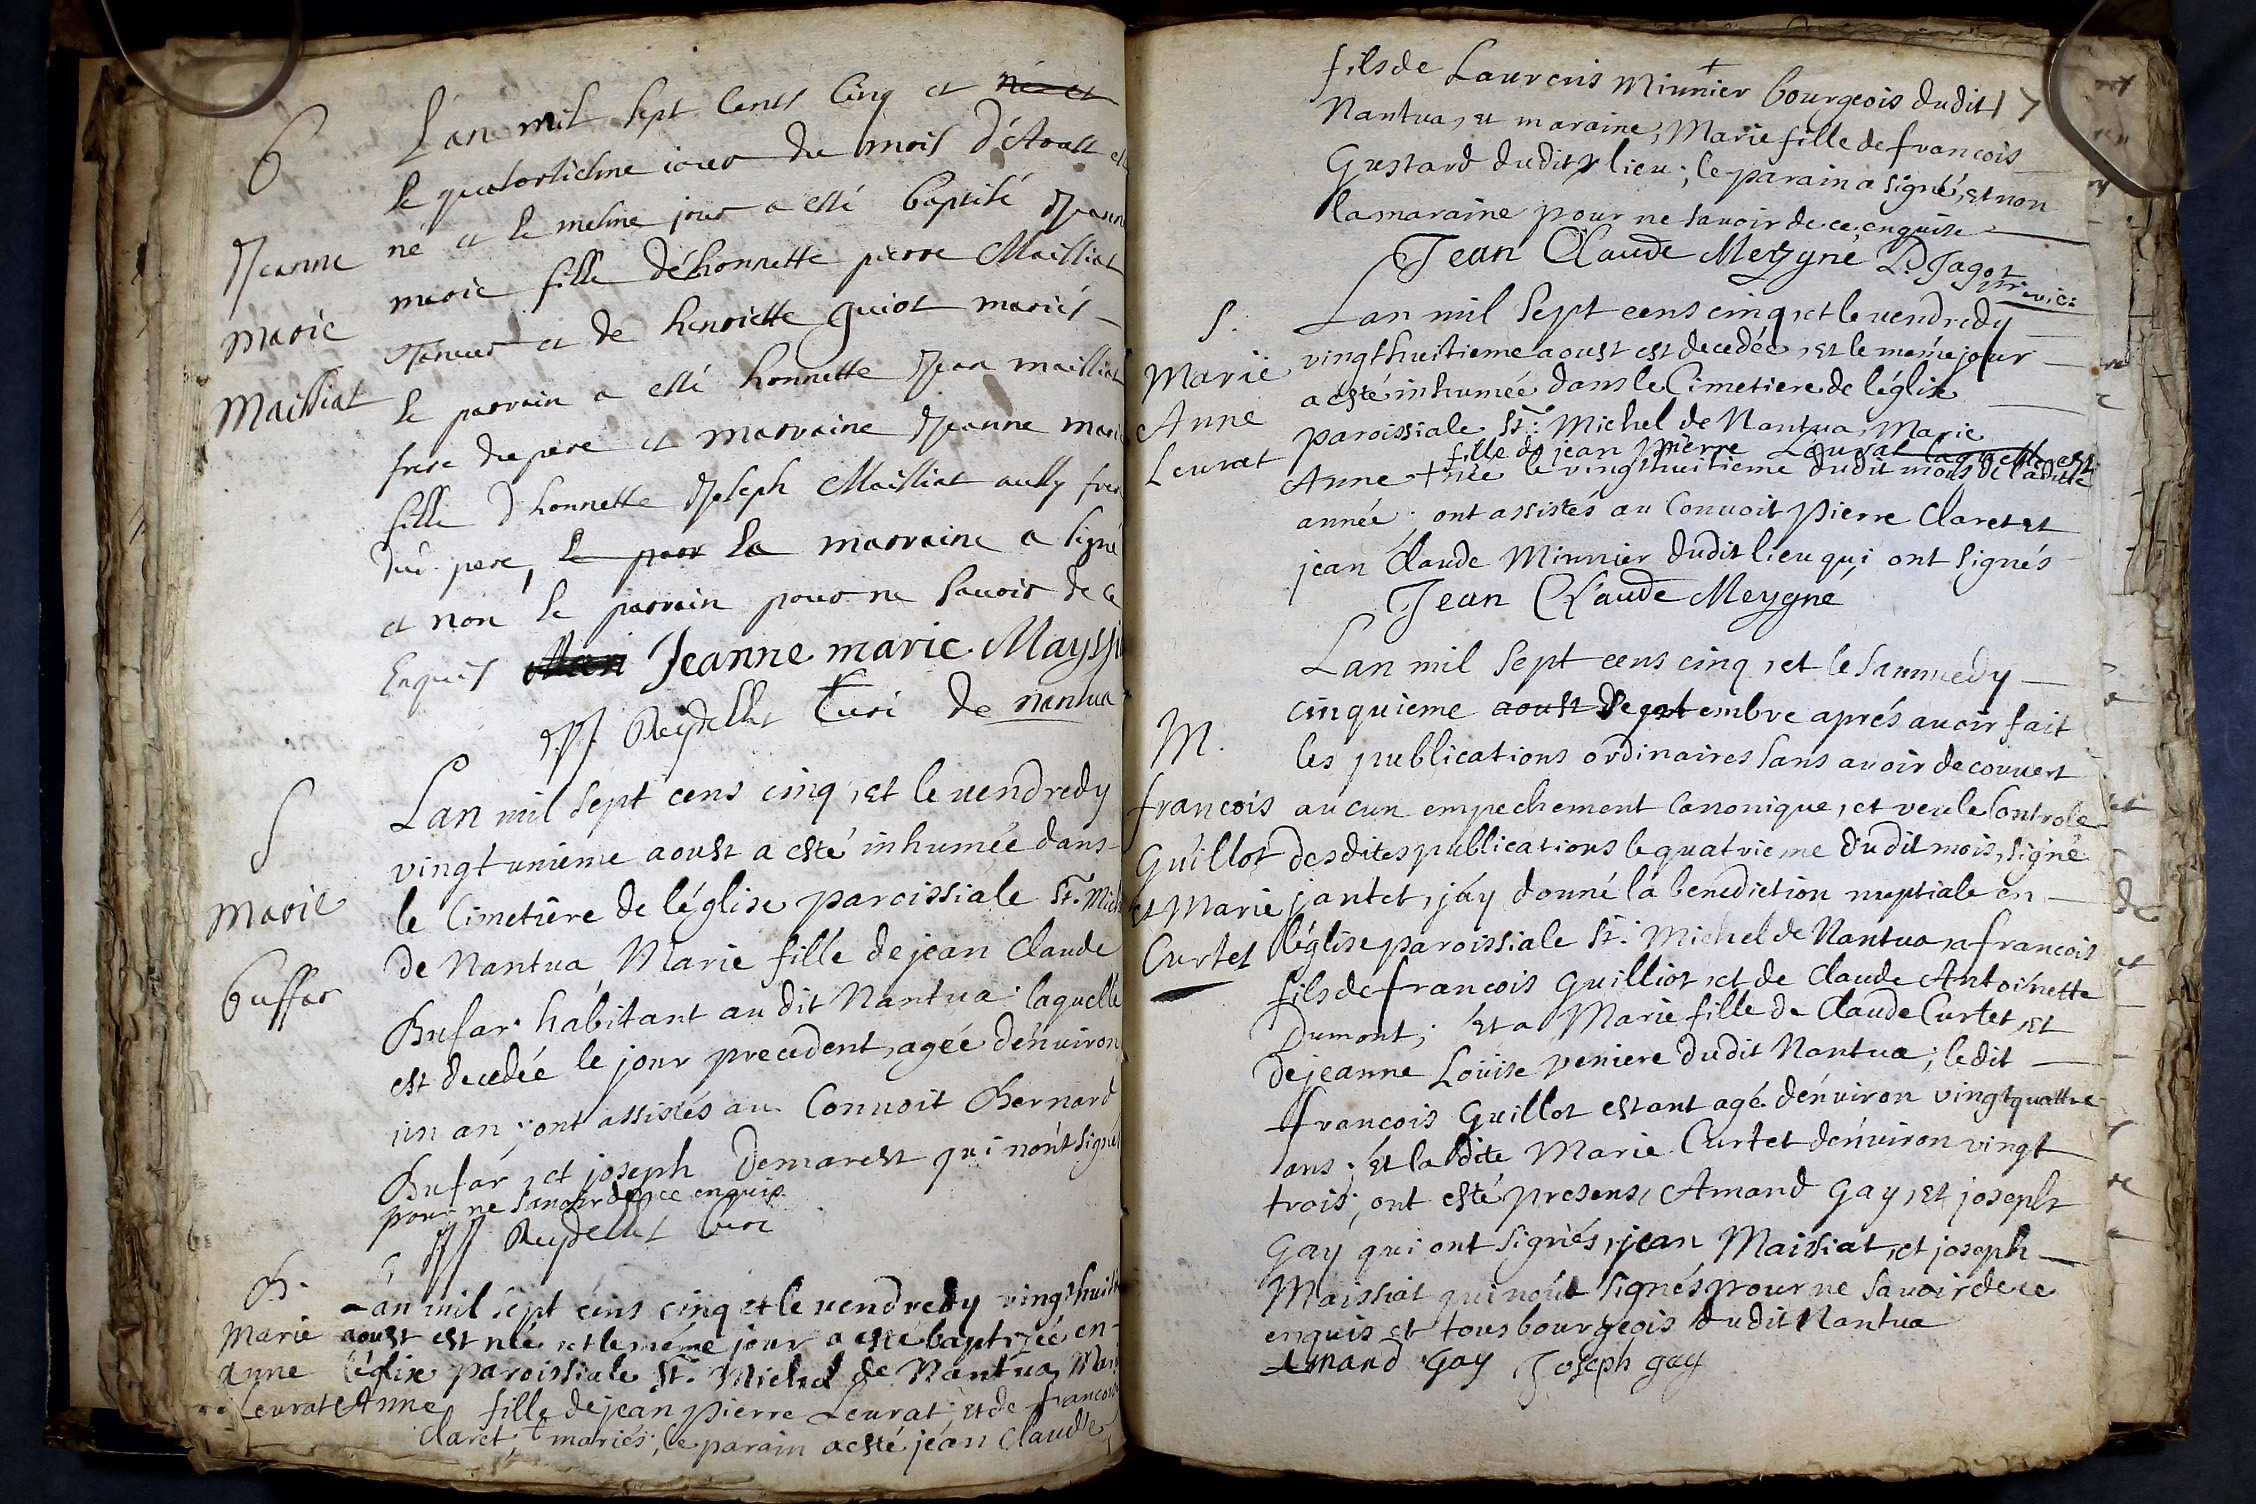 B
Jeanne
marie
Mailliat
L'an mil sept cents cinq et né et
le quatorziesme iour du mois d'Aoust est
né et le mesme jour a esté baptisé Jeanne
marie fille d'honnette pierre Mailliat
Taneur et de henriette guiot mariés
le parrain a esté honnette Jean mailliat
frere du pere et marraine Jeanne marie
fille d'honnette Joseph Mailliat aussy frere
dud. pere, le parr la marraine a signé
et non le parrain pour ne sauoir de ce
Enquis Jeanne marie Mayssia
Reydellet Curé de nantua
S
Marie
buffar
Lan mil sept cens cinq, et le uendredy
vingt unième aoust a esté inhumée dans
le Cimetière de léglise paroissiale St. Mich
de Nantua, Marie fille de jean Claude
Bufar habitant au dit Nantua; laquelle
est decedée le jour precedent, agée d'enuiron
un an; ont assistés au Conuoit Bernard
Bufar, et joseph Demarest qui n'ont signés
pour ne sauoir de ce enquis
Reydellet Curé
B.
Marie
Anne
Leurat
Lan mil sept cens cinq et le uendredy vingt huit
aoust est née, et le méme jour a esté baptizée en
léglise paroissiale St. Michel de Nantua, Marie
Anne fille de jean pierre Leurat, et de francoise
Claret, mariés; le parain a esté jean Claude
17
fils de Laurens Minnier bourgeois dudit
Nantua, et maraine, Marie fille de francois
Gustard dudit lieu; le parain a signé, et non
la maraine pour ne sauoir de ce enquise
Jean Claude Meygne D. Jagot
vic:
S.
Marie
Anne
Leurat
Lan mil sept cens cinq, et le vendredy
vingt huitieme aoust est decedée, et le méme jour
a esté inhumée dans le Cimetiere de léglise
paroissiale St. Michel de Nantua, Marie
fille de jean pierre Leurat laquelle est
Anne + née le vingt huitieme dudit mois de ladite
année; ont assistés au Conuoit pierre Claret et
jean Claude Minnier dudit lieu qui ont signés
Jean Claude Meygne
M.
francois
Guillot
et Marie
Curtet
Lan mil sept cens cinq, et le sammedy
cinquieme aoust septembre aprés auoir fait
les publications ordinaires sans auoir decouuert
aucun empechement canonique, et veu le Controle
desdites publications le quatrieme dudit mois, signé
jantet, jáy donné la benediction nuptiale en
léglise paroissiale St. Michel de Nantua, a francois
fils de francois Guilliot, et de Claude Antoinette
Dumont; et a Marie fille de Claude Curtet, et
de jeanne Loüise veniere dudit Nantua; ledit
francois Guillot estant agé d'enuiron vingt quattre
ans; et la dite Marie Curtet d'enuiron vingt
trois; ont esté presens, Amand Gay, et joseph
Gay qui ont signés, jean Maissiat, et joseph
Maissiat qui n'ont signés pour ne sauoir de ce
enquis et tous bourgeois dudit Nantua
Amand Gay Joseph gay